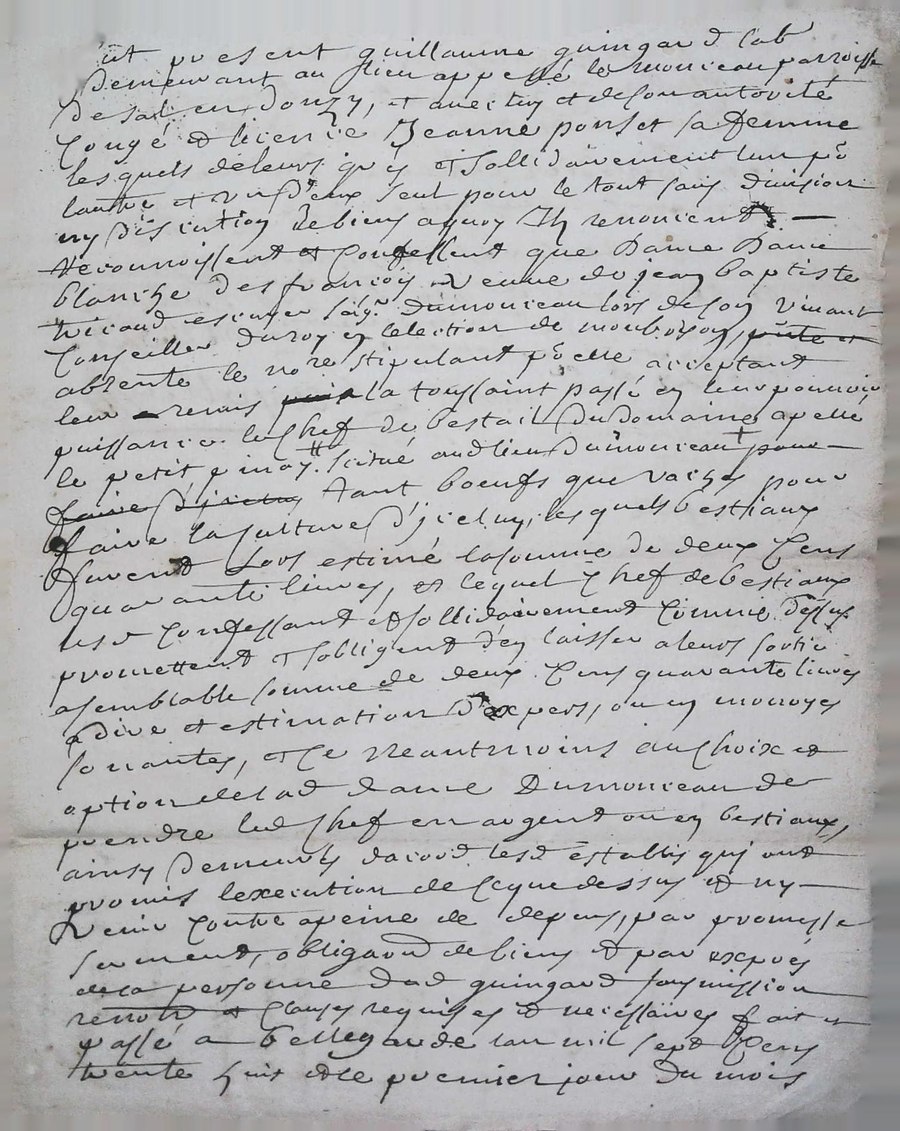 fut present guillaume guingard lab
demeurant au lieu appellé le monceau parroisse
de sal en donzy, et avec luy et de son autorité
congé et licence Jeanne ponset sa femme
lesquels de leurs grés et sollidairement lun po
lautre et un deux seul pour le tout sans division
ny discution de biens a quoy Ils renoncent
reconnoissent et confessent que dame dame
blanche des francois veuve de jean baptiste
escuyer seigr dumonceau lors de son vivant
Conseiller du roy en lelection de monbrison, pnte et
absente le nore stipulant po elle acceptant
leur remis la toussaint passé en leur pouvoir
puissance le chef de bestail du domaine apellé
le petit pinay scitué audit lieu du monceau pour
faire dicelluy tant boeufs que vaches pour
faire la culture d'jceluy, lesquels bestiaux
furent lors estimé la somme de deux cens
quarante livres, et lequel chef de bestiaux
lesd confessant et sollidairement comme dessus
promettent et sobligent d'en laisser a leurs sortie
a semblable somme de deux cens quarante livres
a dire et estimation d'expers, ou en monoyes
sonantes, et ce neantmoins au choix et
option de lad dame Dumonceau de
prendre led chef en argent ou en bestiaux,
ainsy demeurés dacord lesd establis quj ont
promis lexecution de ce que dessus et ny
venir contre a peine de depens, par promesse
serment, obligaon de biens et par exprés
de la personne dud guingard soumission
renon et clauses requises et necessaires fait et
passé a bellegarde lan mil sept cens
trente huit et le premier jour du mois